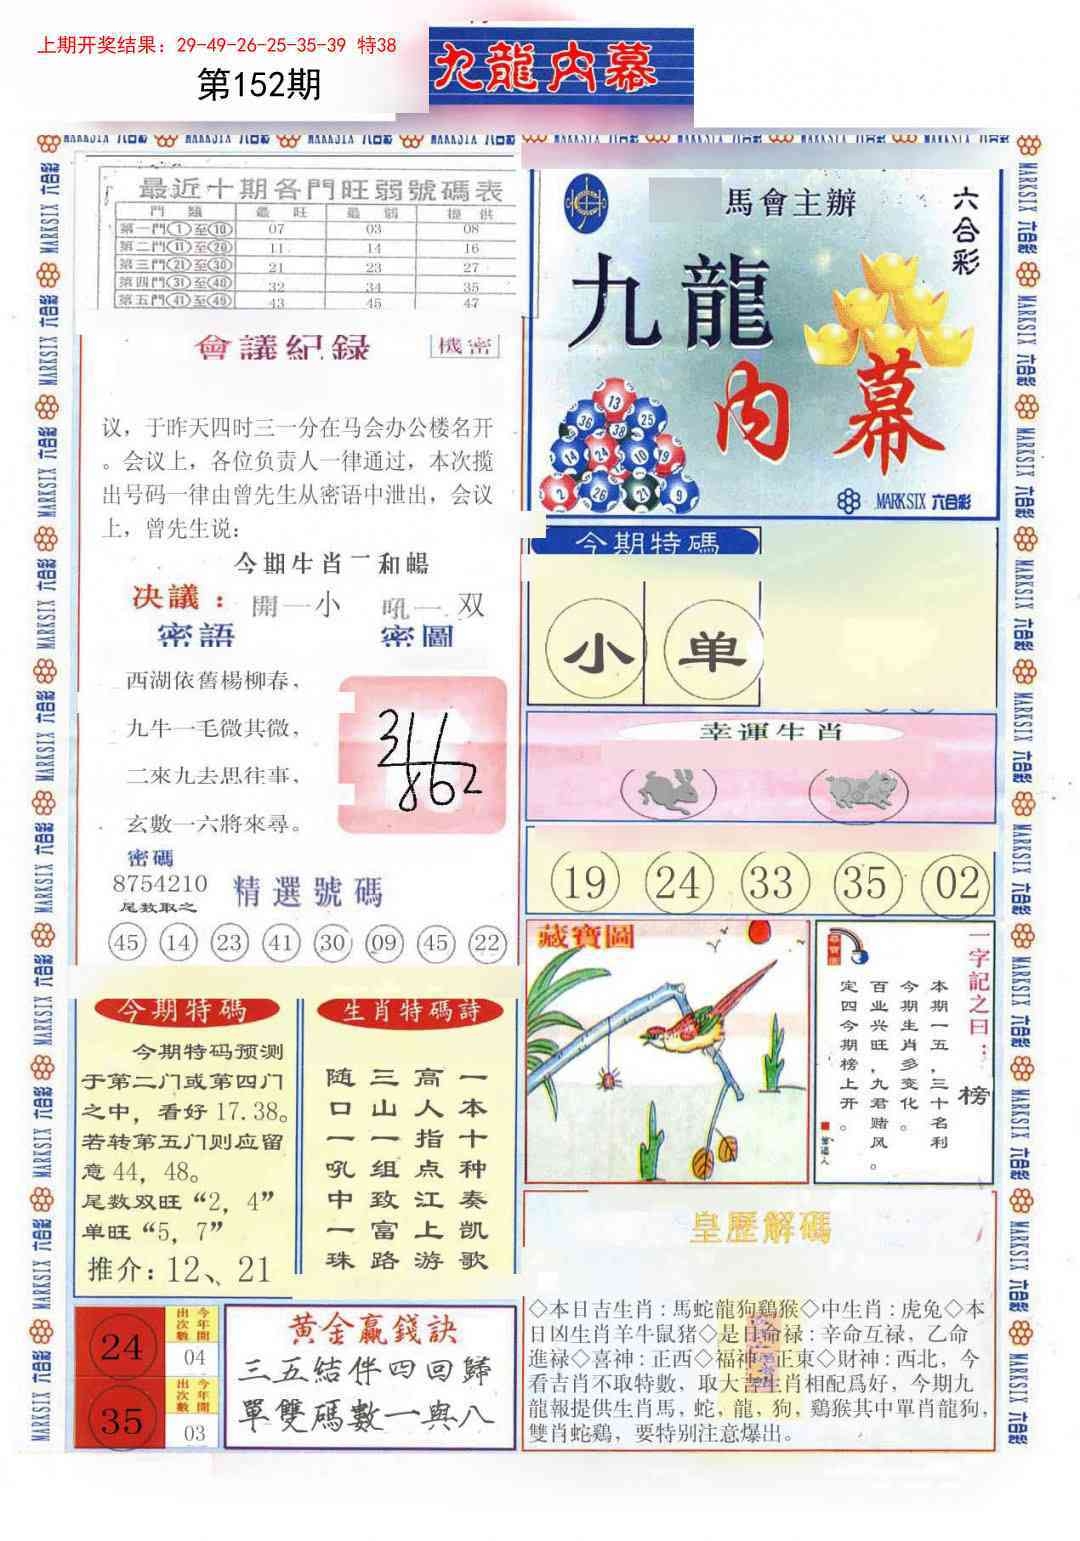 上期开奖结果：29-49-26-25-35-39 特38
第152期
九龍内幕
最近十期各門旺弱號碼表
門類 最旺 最弱 提供
第一門①至⑩ 07 03 08
第二門⑪至⑳ 11 14 16
第三門㉑至㉚ 21 23 27
第四門㉛至㊵ 32 34 35
第五門㊶至㊾ 43 45 47
會議紀録
機密
议，于昨天四时三一分在马会办公楼名开
。会议上，各位负责人一律通过，本次揽
出号码一律由曾先生从密语中泄出，会议
上，曾先生说：
今期生肖二和暢
决議：
開一小 吼一双
密語 密圖
西湖依舊楊柳春，
九牛一毛微其微，
二來九去思往事，
玄數一六將來尋。
密碼
8754210
尾数取之
精選號碼
45 14 23 41 30 09 45 22
馬會主辦
六合彩
九龍
内幕
13
36 38 25
14 24 10 19
2 26 21 9
MARKSIX 六合彩
今期特碼
小 单
幸運生肖
19 24 33 35 02
今期特码
今期特码预测
于第二门或第四门
之中，看好17.38。
若转第五门则应留
意44，48。
尾数双旺“2，4”
单旺“5，7”
推介：12、21
生肖特碼詩
一本十种奏凯歌
高人指点江上游
三山一组致富路
随口一吼中一珠
藏寶圖
一字記之曰：榜
本期一五，三十名利
今期生肖多变化。
百业兴旺，九君赌风。
定四今期榜上开。
24
今年開出次數
04
35
今年開出次數
03
黄金贏錢訣
三五結伴四回歸
單雙碼數一與八
皇歷解碼
◇本日吉生肖：馬蛇龍狗鷄猴◇中生肖：虎兔◇本
日凶生肖羊牛鼠猪◇是日命禄：辛命互禄，乙命
進禄◇喜神：正西◇福神：正東◇財神：西北，今
看吉肖不取特數，取大吉生肖相配爲好，今期九
龍報提供生肖馬，蛇，龍，狗，鷄猴其中單肖龍狗，
雙肖蛇鷄，要特别注意爆出。